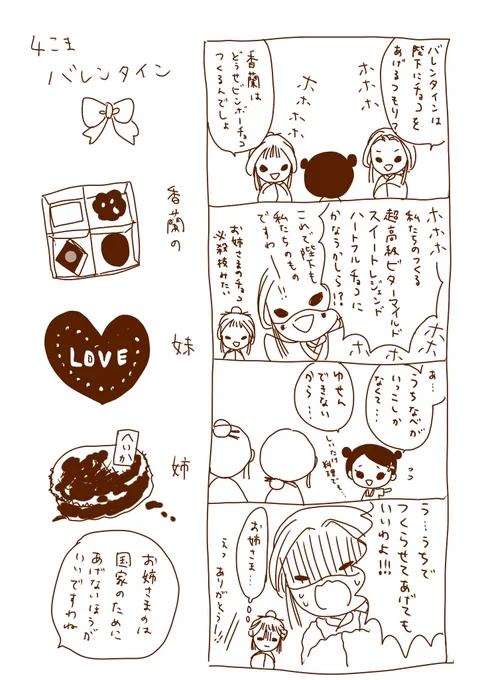 4こま
バレンタイン
バレンタインは
陛下にチョコを
あげるつもり?
ホホホホ
ホホホホ
香蘭は
どうせビンボーチョコ
つくるんでしょ
ホホホ
私たちのつくる
超高級ビターマイルド
スイートレジェンド
ハートフルチョコに
かなうかしら!?
ホホホホ
これで陛下も
私たちのもの
ですわ
お姉さまのチョコ
必殺技みたい
あ…
うちなべが
いっこしか
なくて…
ゆせん
できない
から…
しいたけ
料理で…
う…うちで
つくらせてあげても
いいわよ!!!
お姉さま…
えっ ありがとう!!
香蘭の
妹
LOVE
姉
へいか
お姉さまのは
国家のために
あげないほうが
いいですわね